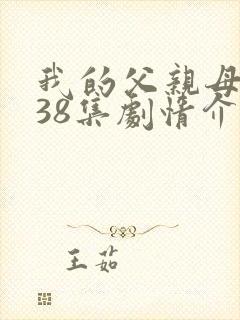 我的父親母
38集劇情介
王茹